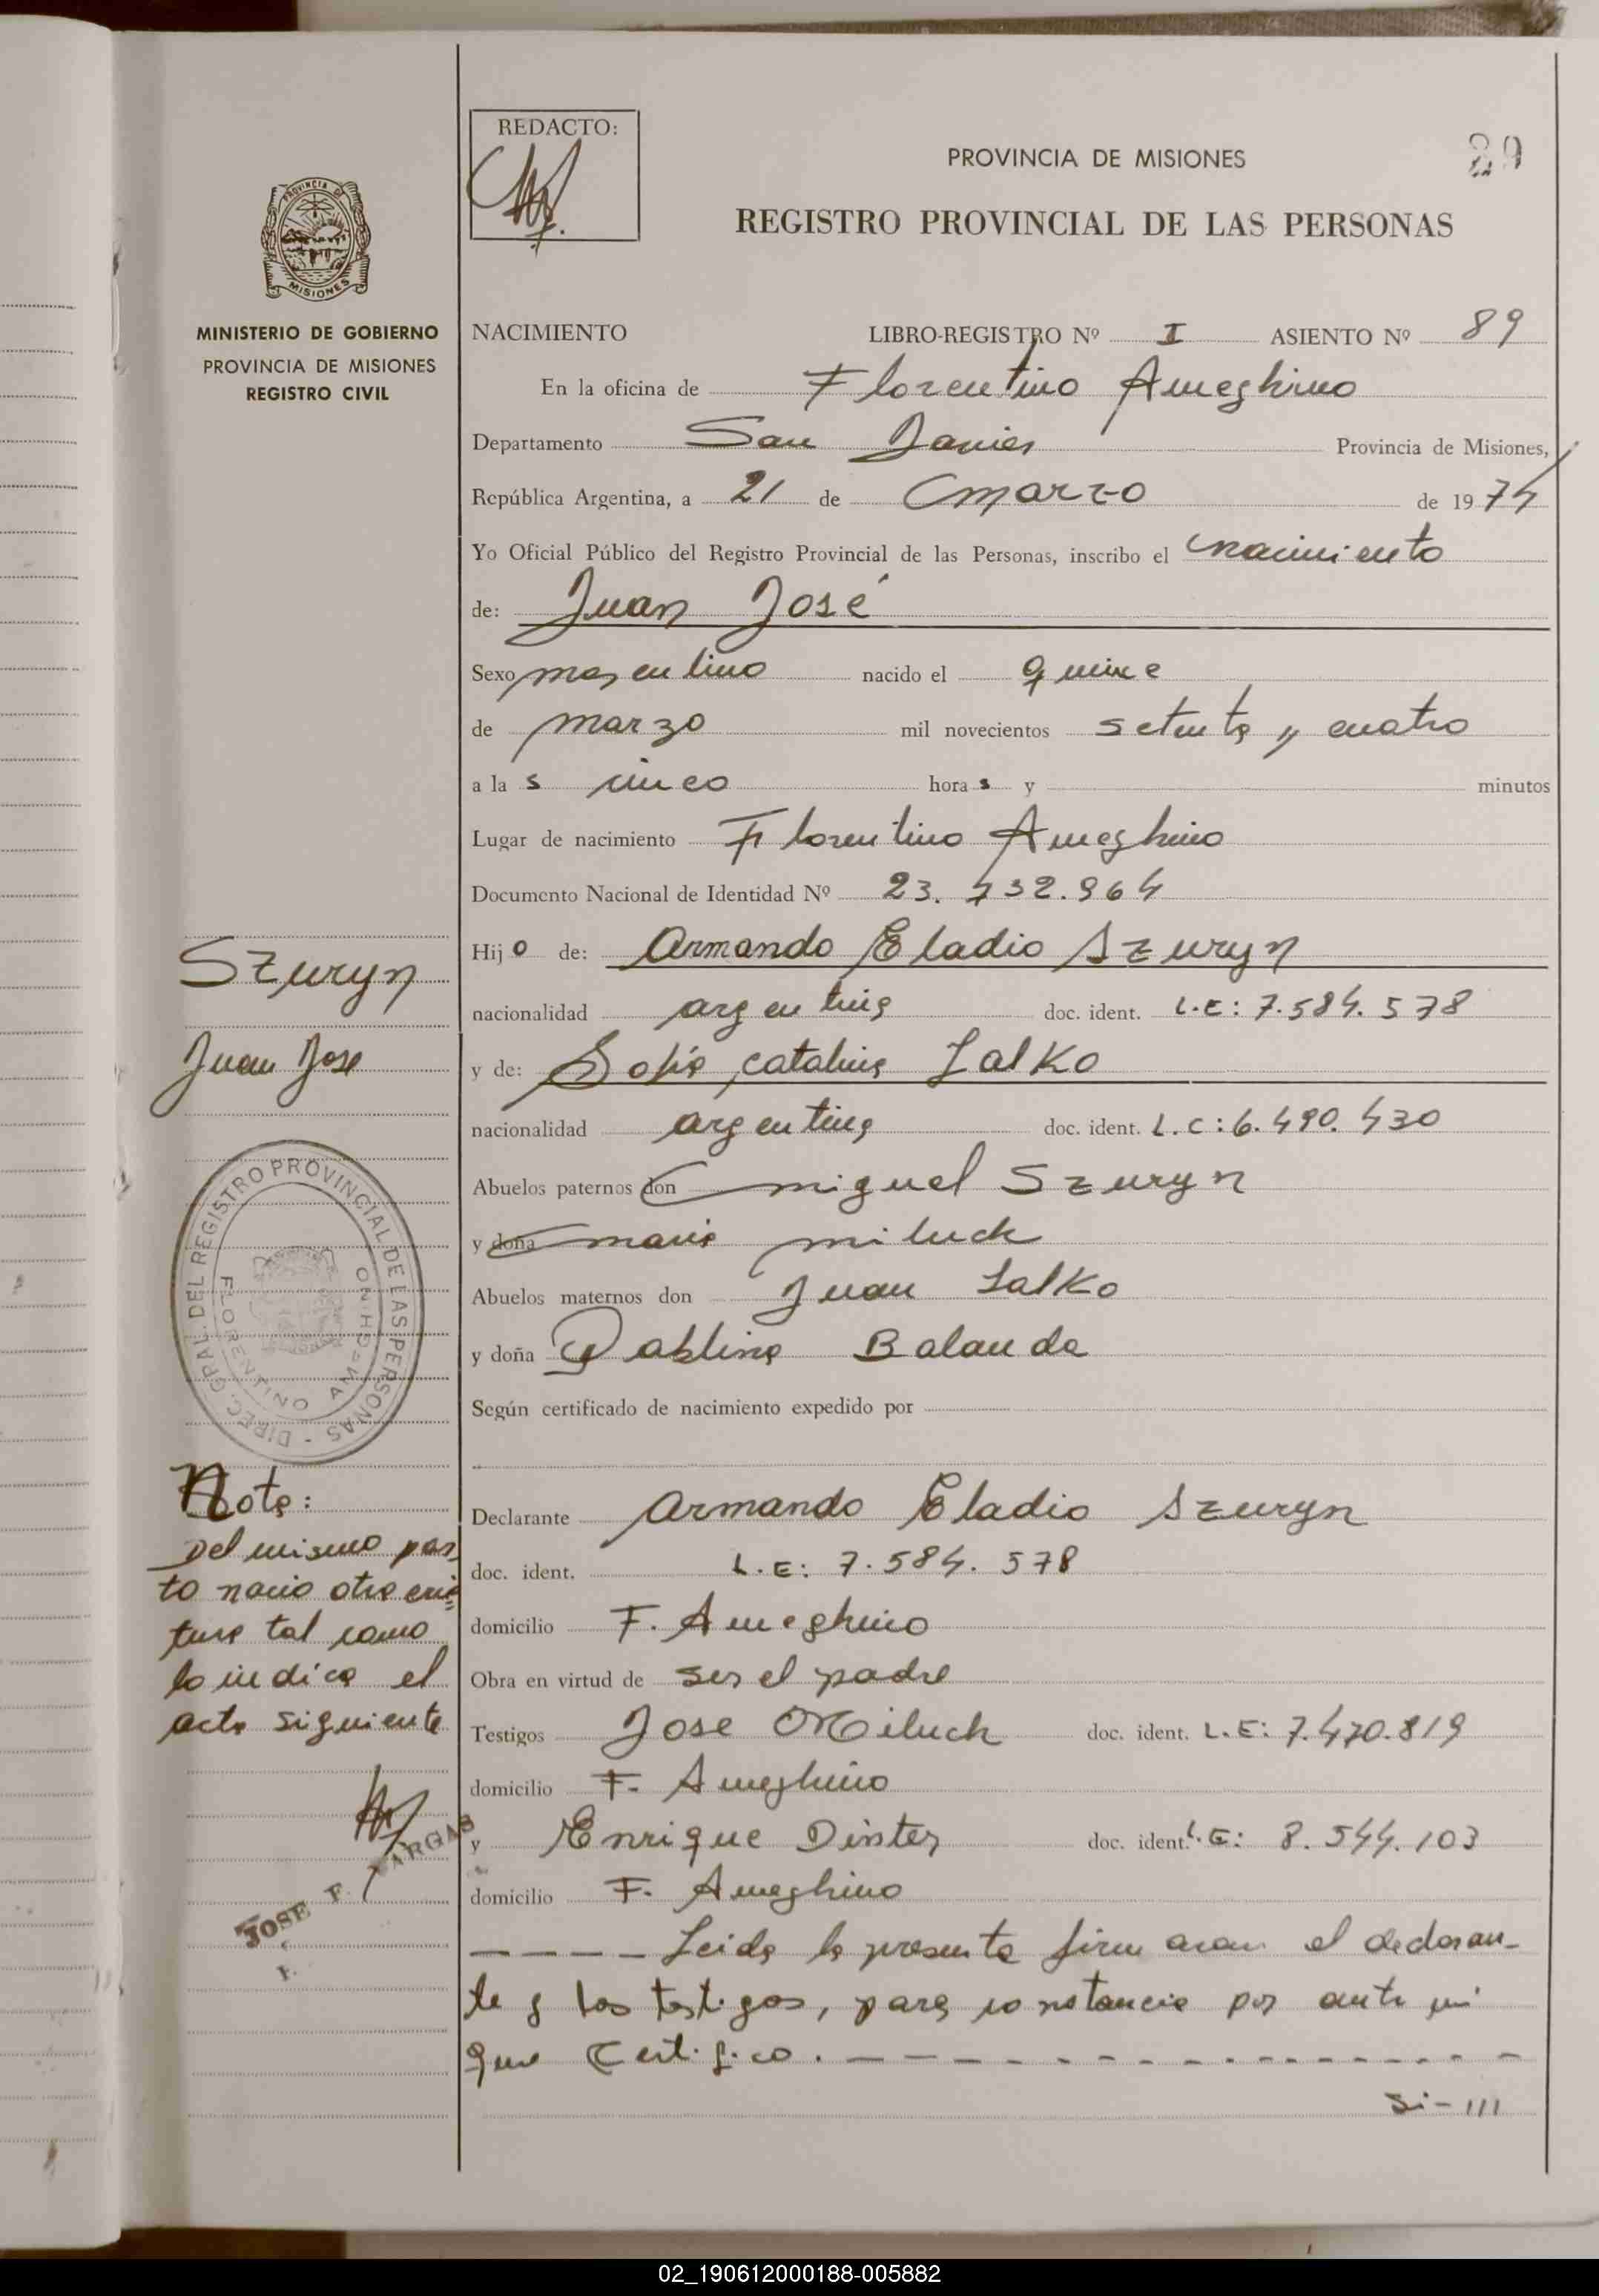 REDACTO:
PROVINCIA DE MISIONES
89
REGISTRO PROVINCIAL DE LAS PERSONAS
PROVINCIA DE
MISIONES
MINISTERIO DE GOBIERNO
PROVINCIA DE MISIONES
REGISTRO CIVIL
NACIMIENTO LIBRO-REGISTRO Nº I ASIENTO Nº 89
En la oficina de Florentino Ameghino
Departamento San Javier Provincia de Misiones,
República Argentina, a 21 de marzo de 1974
Yo Oficial Público del Registro Provincial de las Personas, inscribo el nacimiento
de: Juan José
Sexo masculino nacido el quince
de marzo mil novecientos setenta y cuatro
a la s cinco hora s y minutos
Lugar de nacimiento Florentino Ameghino
Documento Nacional de Identidad Nº 23.732.964
Hijo de: Armando Eladio Szuryn
nacionalidad argentina doc. ident. L.E: 7.584.578
y de: Sofia Catalina Lalko
nacionalidad argentina doc. ident. L.C: 6.490.430
Abuelos paternos don miguel Szuryn
y doña maria miluck
Abuelos maternos don Juan Lalko
y doña Pablina Balanda
Según certificado de nacimiento expedido por
Declarante Armando Eladio Szuryn
doc. ident. L.E: 7.584.578
domicilio F. Ameghino
Obra en virtud de ser el padre
Testigos Jose Miluck doc. ident. L.E: 7.470.819
domicilio F. Ameghino
y Enrique Dinter doc. ident. L.E: 8.544.103
domicilio F. Ameghino
---- Leida la presente firmaran el declaran-
te y los testigos, para constancia por ante mi
que Certifico. ----------------
Si - III
Szuryn
Juan Jose
DIREC. GRAL. DEL REGISTRO PROVINCIAL DE LAS PERSONAS -
FLORENTINO AMEGHINO
Nota:
Del mismo par
to nacio otra cria=
tura tal como
lo indica el
acta siguiente
JOSE F. VARGAS
02_190612000188-005882